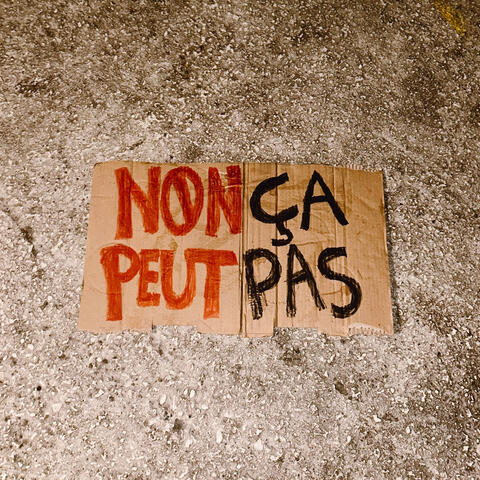 NON ÇA
PEUT PAS